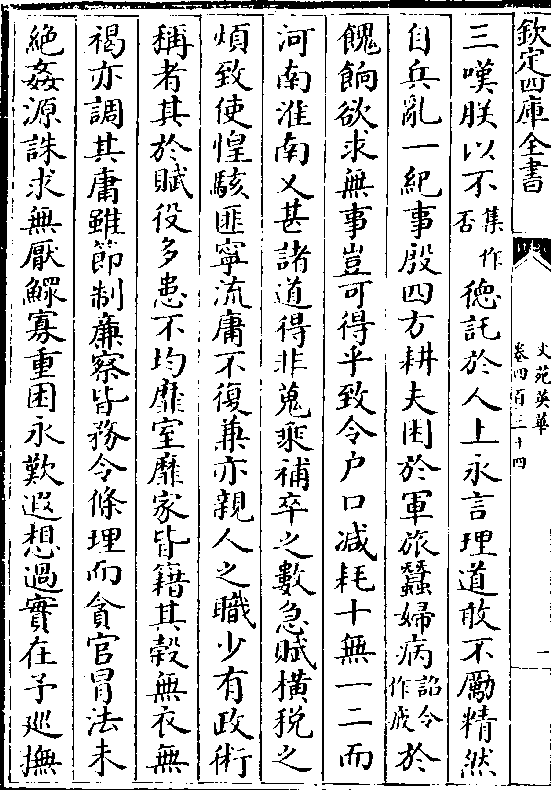 欽定四庫全書
文苑英華
卷四百三十四
一
三嘆朕以不集作否德託於人上永言理道敢不勵精然
自兵亂一紀事殷四方耕夫困於軍旅蠶婦病詔令作疲於
餽餉欲求無事豈可得乎致令户口减耗十無一二而
河南淮南又甚諸道得非蒐乘補卒之數急賦橫税之
煩致使惶駭匪寧流庸不復兼亦親人之職少有政術
稱者其於賦役多患不均靡室靡家皆籍其榖無衣無
褐亦調其庸雖節制廉察皆務令條理而貪官冒法未
絶姦源誅求無厭鰥寡重困永歎遐想過實在予巡撫